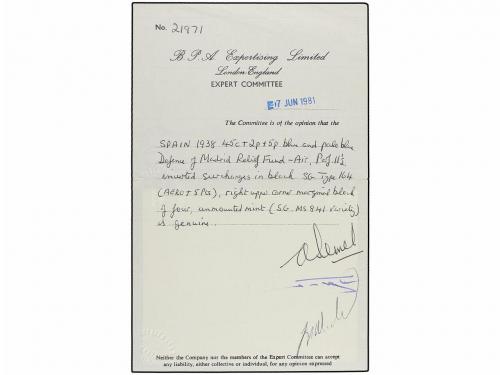 No. 21971
B.P.A. Expertising Limited
London England
EXPERT COMMITTEE
17 JUN 1981
The Committee is of the opinion that the
SPAIN 1938 45c + 2p + 5p blue and pale blue
Defense of Madrid Relief Fund - Air, Perf. 11½
inverted surcharges in black SG Type 164
(AERO + 5 Pts), right upper corner marginal block
of four, unmounted mint (S.G. MS 841 variety)
is genuine.
Neither the Company nor the members of the Expert Committee can accept
any liability, either collective or individual, for any opinion expressed